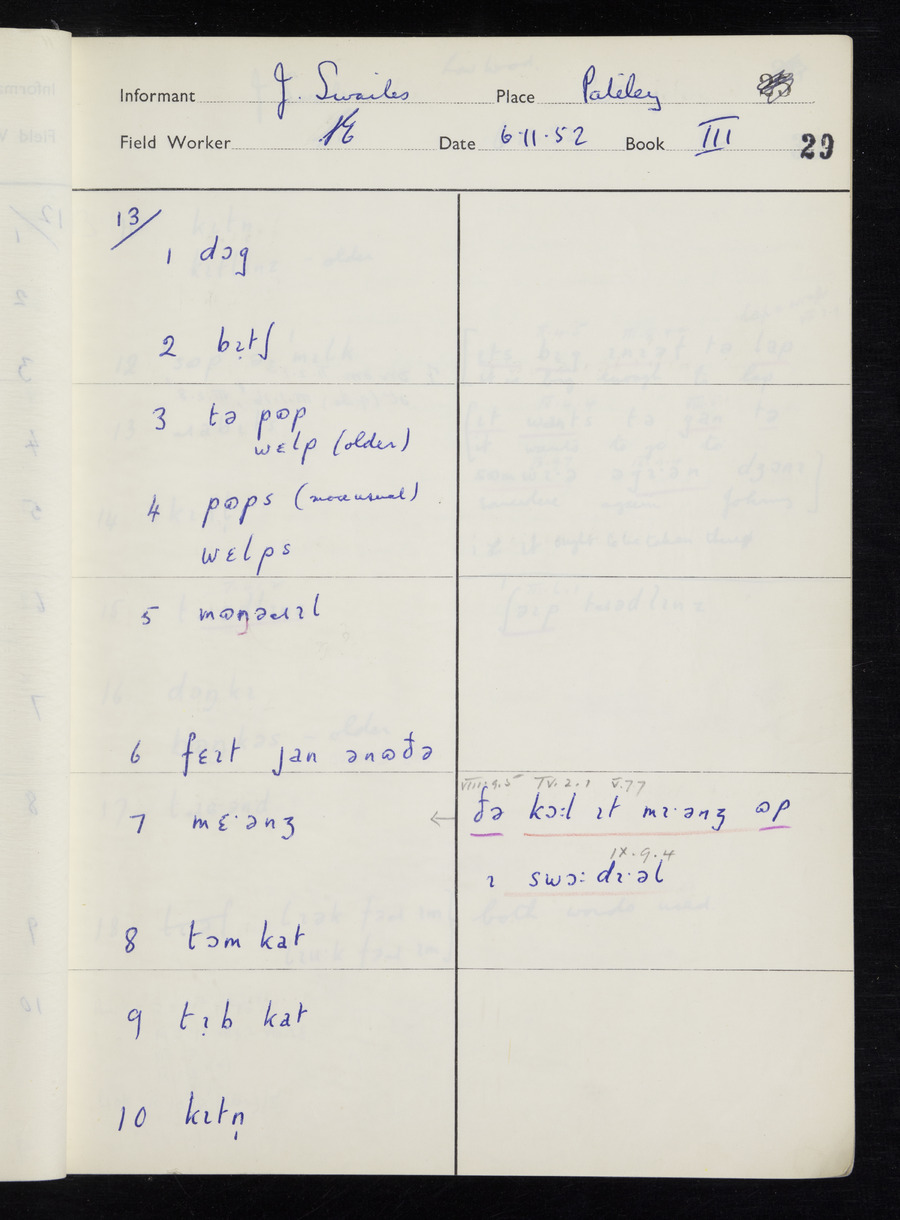 Informant J. Swailes Place Pateley
Field Worker Date 6·11·52 Book III 29
13/
1 dɔg
2 bɪ̣tʃ
3 tə pɷp
wɛlp (older)
4 pɷps (more usual)
wɛlps
5 mɷŋəɹɪl
6 fɛɪt jan ənɷðə
VIII.9.5 IV.2.1 V.7.7
7 mɛ·ənʒ ← ðə kɔ:l ɪt mɪ·ənʒ ɷp
IX.9.4
ɪ swɔ:dɪ·əl
8 tɔm kat
9 tɪ̣b kat
10 kɪtṇ